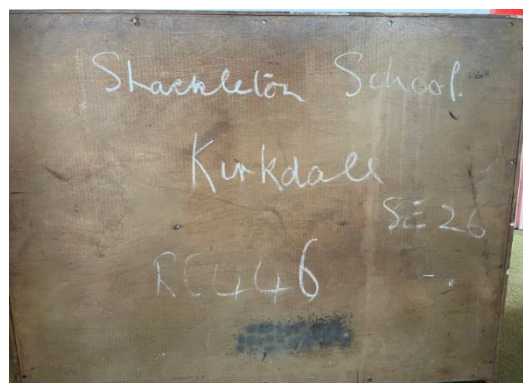 Shackleton School.
Kirkdale
SE 26
RE446